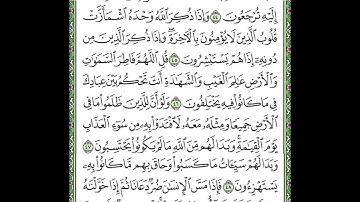 إِلَيْهِ تُرْجَعُونَ ٤٤ وَإِذَا ذُكِرَ ٱللَّهُ وَحْدَهُ ٱشْمَأَزَّتْ
قُلُوبُ ٱلَّذِينَ لَا يُؤْمِنُونَ بِٱلْءَاخِرَةِ ۖ وَإِذَا ذُكِرَ ٱلَّذِينَ مِن
دُونِهِۦٓ إِذَا هُمْ يَسْتَبْشِرُونَ ٤٥ قُلِ ٱللَّهُمَّ فَاطِرَ ٱلسَّمَٰوَٰتِ
وَٱلْأَرْضِ عَٰلِمَ ٱلْغَيْبِ وَٱلشَّهَٰدَةِ أَنتَ تَحْكُمُ بَيْنَ عِبَادِكَ
فِى مَا كَانُوا۟ فِيهِ يَخْتَلِفُونَ ٤٦ وَلَوْ أَنَّ لِلَّذِينَ ظَلَمُوا۟ مَا فِى
ٱلْأَرْضِ جَمِيعًا وَمِثْلَهُۥ مَعَهُۥ لَٱفْتَدَوْا۟ بِهِۦ مِن سُوٓءِ ٱلْعَذَابِ
يَوْمَ ٱلْقِيَٰمَةِ ۚ وَبَدَا لَهُم مِّنَ ٱللَّهِ مَا لَمْ يَكُونُوا۟ يَحْتَسِبُونَ ٤٧
وَبَدَا لَهُمْ سَيِّـَٔاتُ مَا كَسَبُوا۟ وَحَاقَ بِهِم مَّا كَانُوا۟ بِهِۦ
يَسْتَهْزِءُونَ ٤٨ فَإِذَا مَسَّ ٱلْإِنسَٰنَ ضُرٌّ دَعَانَا ثُمَّ إِذَا خَوَّلْنَٰهُ